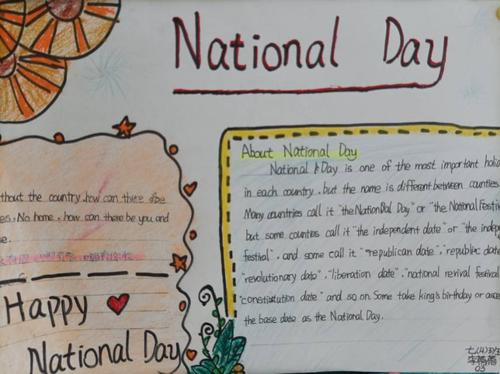 National Day
About National Day
National Day is one of the most important
in each country, but the name is different between counties.
Many countries call it "the National Day" or "the National
but some counties call it "the independent date" or "the
festival", and some call it "republican date", "republic date
"revolutionary date", "liberation date", "national revival festival
"constitution date" and so on. Some take king's birthday or
the base date as the National Day.
thout the country, how can there be
es. No home, how can there be you and
e.
Happy
National Day
七(4)班
03